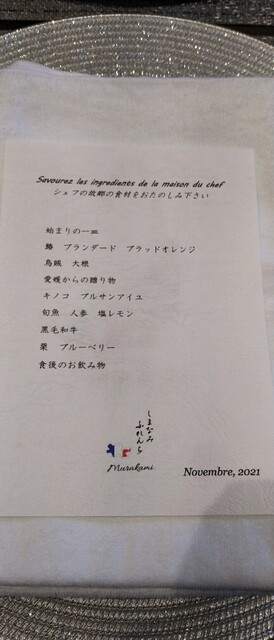 Savourez les ingredients de la maison du chef
シェフの故郷の食材をおたのしみ下さい
始まりの一皿
鰆 ブランダード ブラッドオレンジ
烏賊 大根
愛媛からの贈り物
キノコ ブルサンアイユ
旬魚 人参 塩レモン
黒毛和牛
栗 ブルーベリー
食後のお飲み物
しまなみ
ふれんち
Murakami
Novembre, 2021